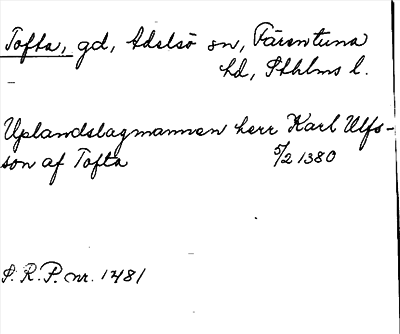 Tofta, gd, Adelsö sn, Färentuna
hd, Sthlms l.
Uplandslagmannen herr Karl Ulfs-
son af Tofta 5/2 1380
S.R.P. nr. 1481